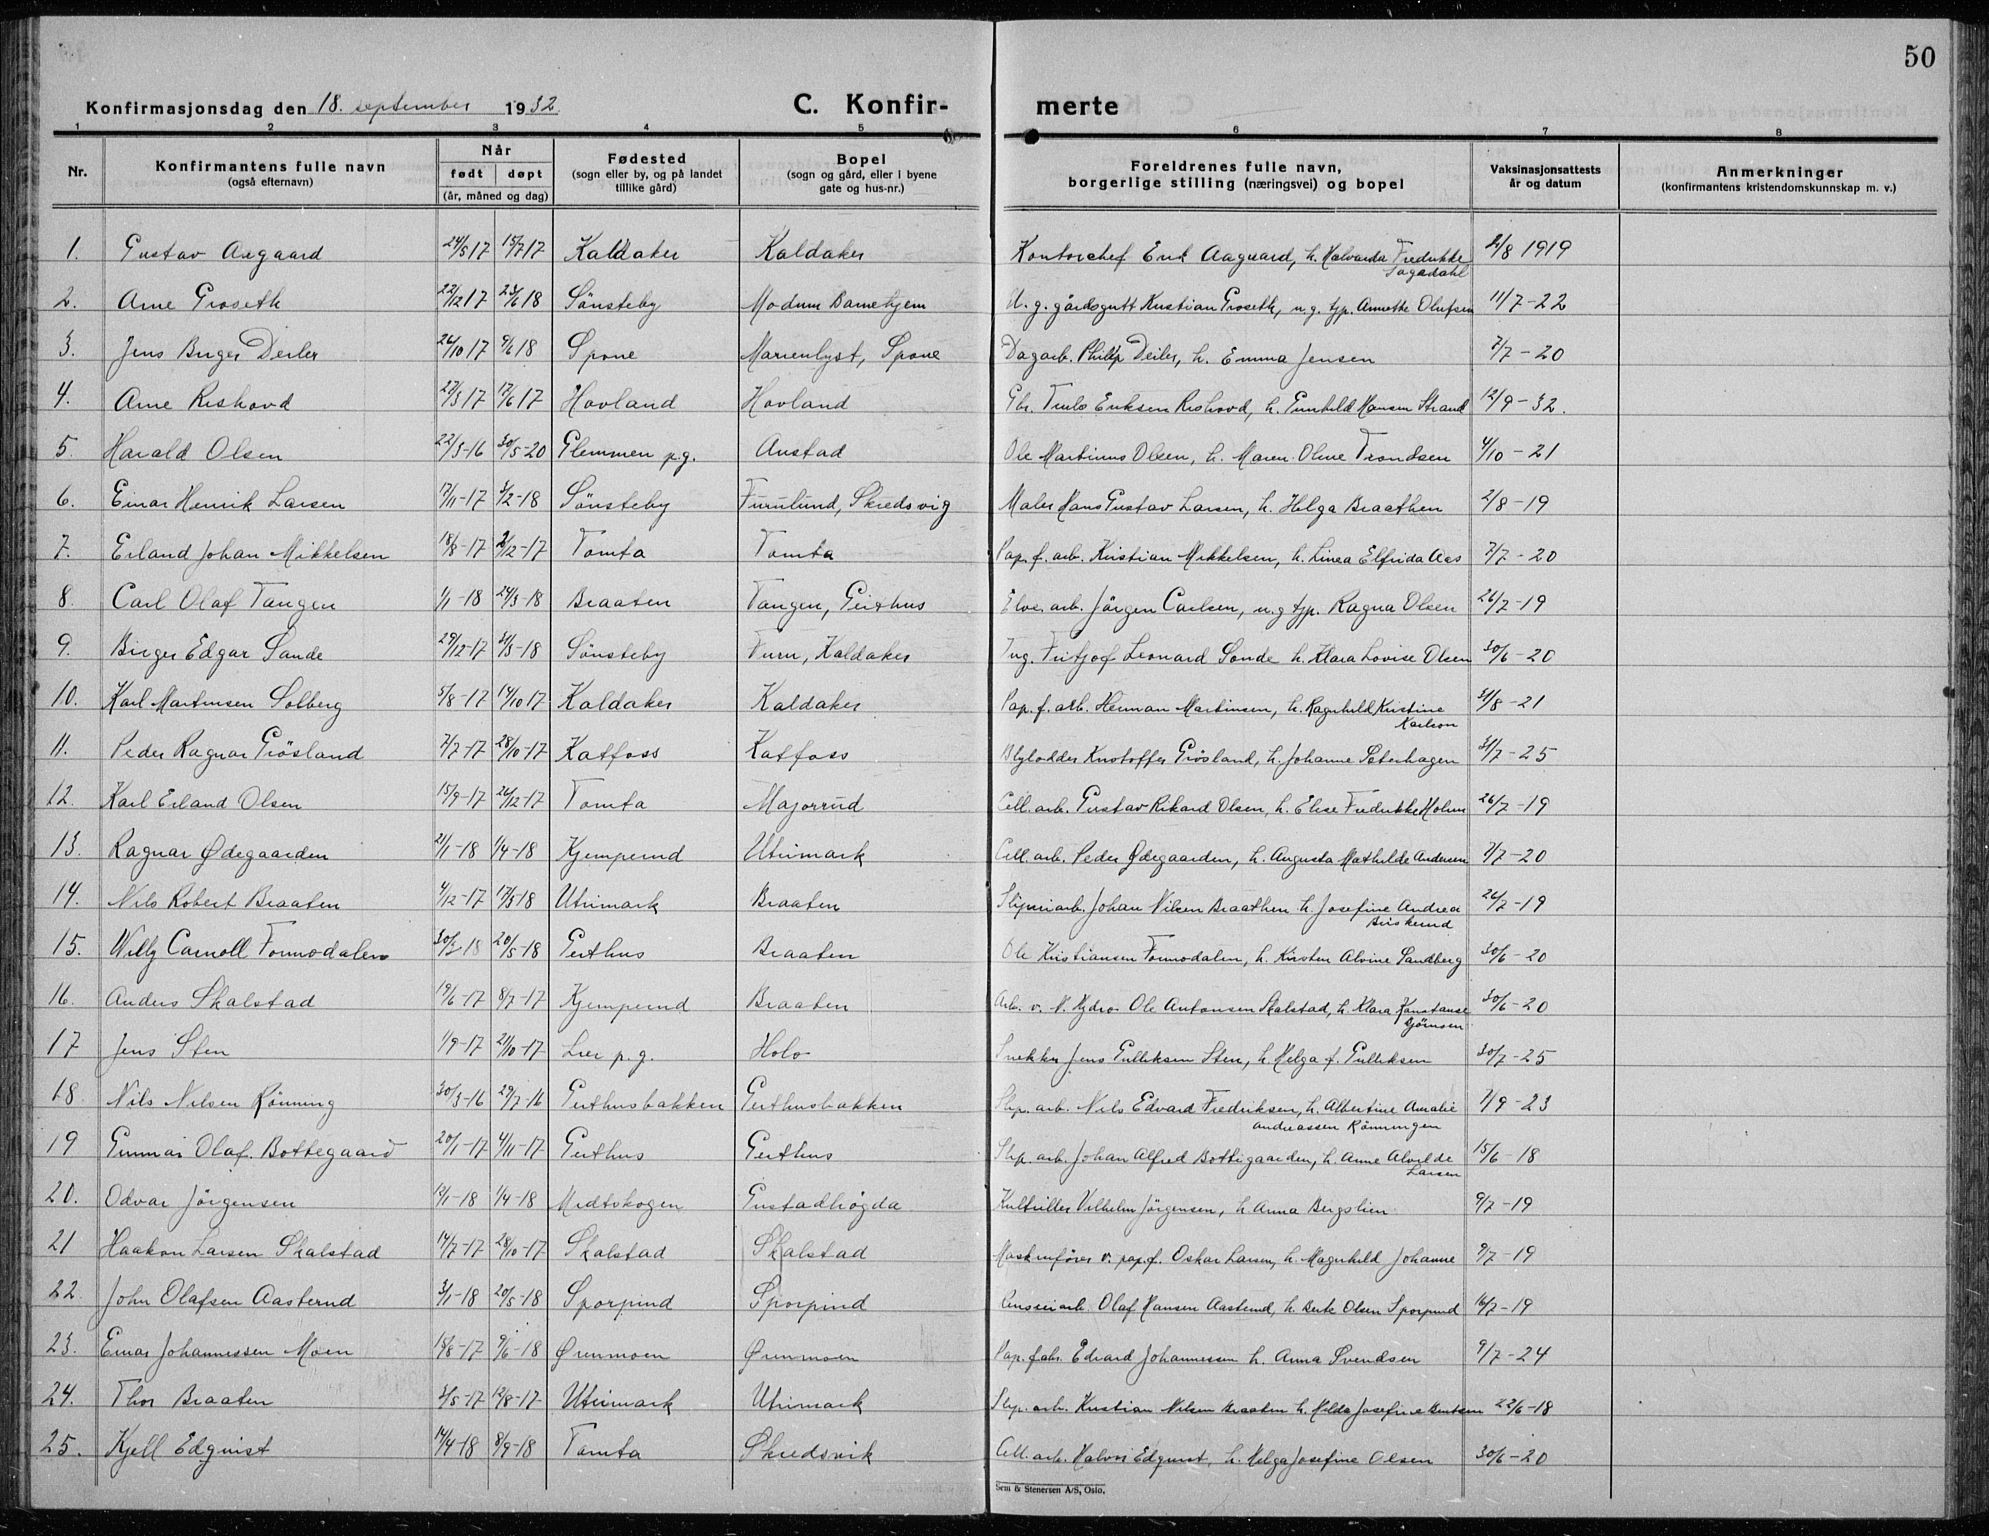 50
Konfirmasjonsdag den 18. september 1932. C. Konfir- merte
1 2 3 4 5 6 7 8
Nr. Konfirmantens fulle navn (også efternavn) Når født døpt (år, måned og dag) Fødested (sogn eller by, og på landet tillike gård) Bopel (sogn og gård, eller i byene gate og hus-nr.) Foreldrenes fulle navn, borgerlige stilling (næringsvei) og bopel Vaksinasjonsattests år og datum Anmerkninger (konfirmantens kristendomskunnskap m. v.)
1. Gustav Aagaard 24/5 17 15/7 17 Kaldaker Kaldaker Kontorchef Erik Aagaard, h. Halvarda Fredrikke Sagadahl 2/8 1919
2. Arne Groseth 22/12 17 23/6 18 Sønsteby Modum Barnehjem U. g. gårdsgutt Kristian Groseth, u. g. typ. Annette Olufsen 11/7 - 22
3. Jens Birger Deiler 26/10 17 9/6 18 Spone Marienlyst, Spone Dagarb. Philip Deiler, h. Emma Jensen 7/7 - 20
4. Arne Rishovd 27/3 17 17/6 17 Hovland Hovland Gbr. Truls Eriksen Rishovd, h. Gunhild Hansen Strand 12/9 - 32.
5. Harald Olsen 22/3-16 30/5-20 Glemmen p.g. Austad Ole Martinius Olsen, h. Maren Oline Trondsen 4/10 - 21
6. Einar Henrik Larsen 17/11-17 3/2-18 Sønsteby Furulund, Skredsvig Maler Hans Gustav Larsen, h. Helga Braathen 2/8 - 19
7. Erland Johan Mikkelsen 18/8-17 2/12-17 Tomta Tomta Pap. f. arb. Kristian Mikkelsen, h. Linea Elfrida Aas 7/7 - 20
8. Carl Olaf Tangen 1/1-18 24/3-18 Braaten Tangen, Geithus Elve. arb. Jörgen Carlsen, u. g typ. Ragna Olsen 26/7 - 19
9. Birger Edgar Sande 29/12-17 31/3-18 Sønsteby Furu, Kaldaker Ing. Fritjof Leonard Sande h. Klara Lovise Olsen 30/6 - 20
10. Karl Martinsen Solberg 5/8-17 14/10 17 Kaldaker Kaldaker Pap. f. arb. Herman Martinsen, h. Ragnhild Kristine Karlson 31/8 - 21
11. Peder Ragnar Grösland 7/7-17 28/10-17 Katfoss Katfoss Blylodder Kristoffer Grösland, h. Johanne Sæterhagen 31/7 - 25
12. Karl Erland Olsen 15/9-17 26/12-17 Tomta Majorrud Cell. arb. Gustav Rikard Olsen, h. Elise Fredrikke Holm 26/7 - 19
13. Ragnar Ødegaarden 21/1-18 1/4-18 Kjemperud Utrimark Cell. arb. Peder Ødegaarden, h. Augusta Mathilde Andersen 7/7 - 20
14. Nils Robert Braaten 4/12-17 17/3 18 Utrimark Braaten Sliperiarb. Johan Nilsen Braathen h. Josefine Andrea Buskerud 26/7 - 19
15. Willy Carnoll Formodalen 30/3-18 20/5-18 Geithus Braaten Ole Kristiansen Formodalen, h. Kirsten Alvine Sandberg 30/6 - 20
16. Anders Skalstad 19/6-17 8/7-17 Kjemperud Braaten Arb. v. N. Hydro Ole Antonsen Skalstad, h. Klara Konstanse Bjørnsen 30/6 - 20
17 Jens Sten 1/9-17 21/10-17 Lier p.g. Holo Snekker Jens Gulliksen Sten, h. Helga f. Gulliksen 30/7 - 25
18. Nils Nilsen Rönning 30/3-16 29/7-16 Geithusbakken Geithusbakken Slip. arb. Nils Edvard Fredriksen, h. Albertine Amalie Andreassen Rönningen 1/9 - 23
19 Gunnar Olaf. Bottegaard 20/1-17 4/11-17 Geithus Geithus Slip. arb. Johan Alfred Bottegaarden, h. Anne Alvilde Larsen 15/6 - 18
20. Odvar Jörgensen 12/1-18 1/4-18 Midtskogen Gustadhögda Kultriller Vilhelm Jörgensen, h. Anna Bergslien 9/7 - 19
21 Haakon Larsen Skalstad 14/7-17 28/10-17 Skalstad Skalstad Maskinfører v. pap.f. Oskar Larsen, h. Magnhild Johanne 9/7 - 19
22. John Olafsen Aasterud 3/1-18 20/5-18 Sporpind Sporpind Olaf Hansen Aasterud, h. Berte Olsen Sporpind 16/7 - 19
23. Einar Johannessen Moen 18/8-17 9/6-18 Ørenmoen Ørenmoen Pap. f. abr. Edvard Johannessen h. Anna Svendsen 9/7 - 24
24. Thor Braaten 3/5-17 12/8-17 Utrimark Utrimark Slip. arb. Kristian Nilsen Braaten h. Hilda Josefine Bentsen 22/6-18
25. Kjell Edquist 14/4-18 8/9-18 Tomta Skredsvik Cell. arb. Halvor Edquist, h. Helga Josefine Olsen 30/6-20
Sem & Stenersen A/S, Oslo.